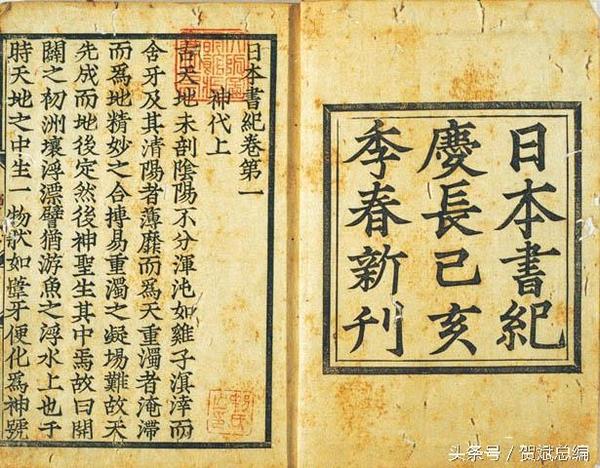 日本書紀
慶長己亥
季春新刊
日本書紀卷第一
神代上
古天地未剖陰陽不分渾沌如雞子溟涬而
含牙及其清陽者薄靡而爲天重濁者淹滯
而爲地精妙之合搏易重濁之凝場難故天
先成而地後定然後神聖生其中焉故曰開
闢之初洲壤浮漂譬猶游魚之浮水上也于
時天地之中生一物狀如葦牙便化爲神號
头条号/贺斌总编